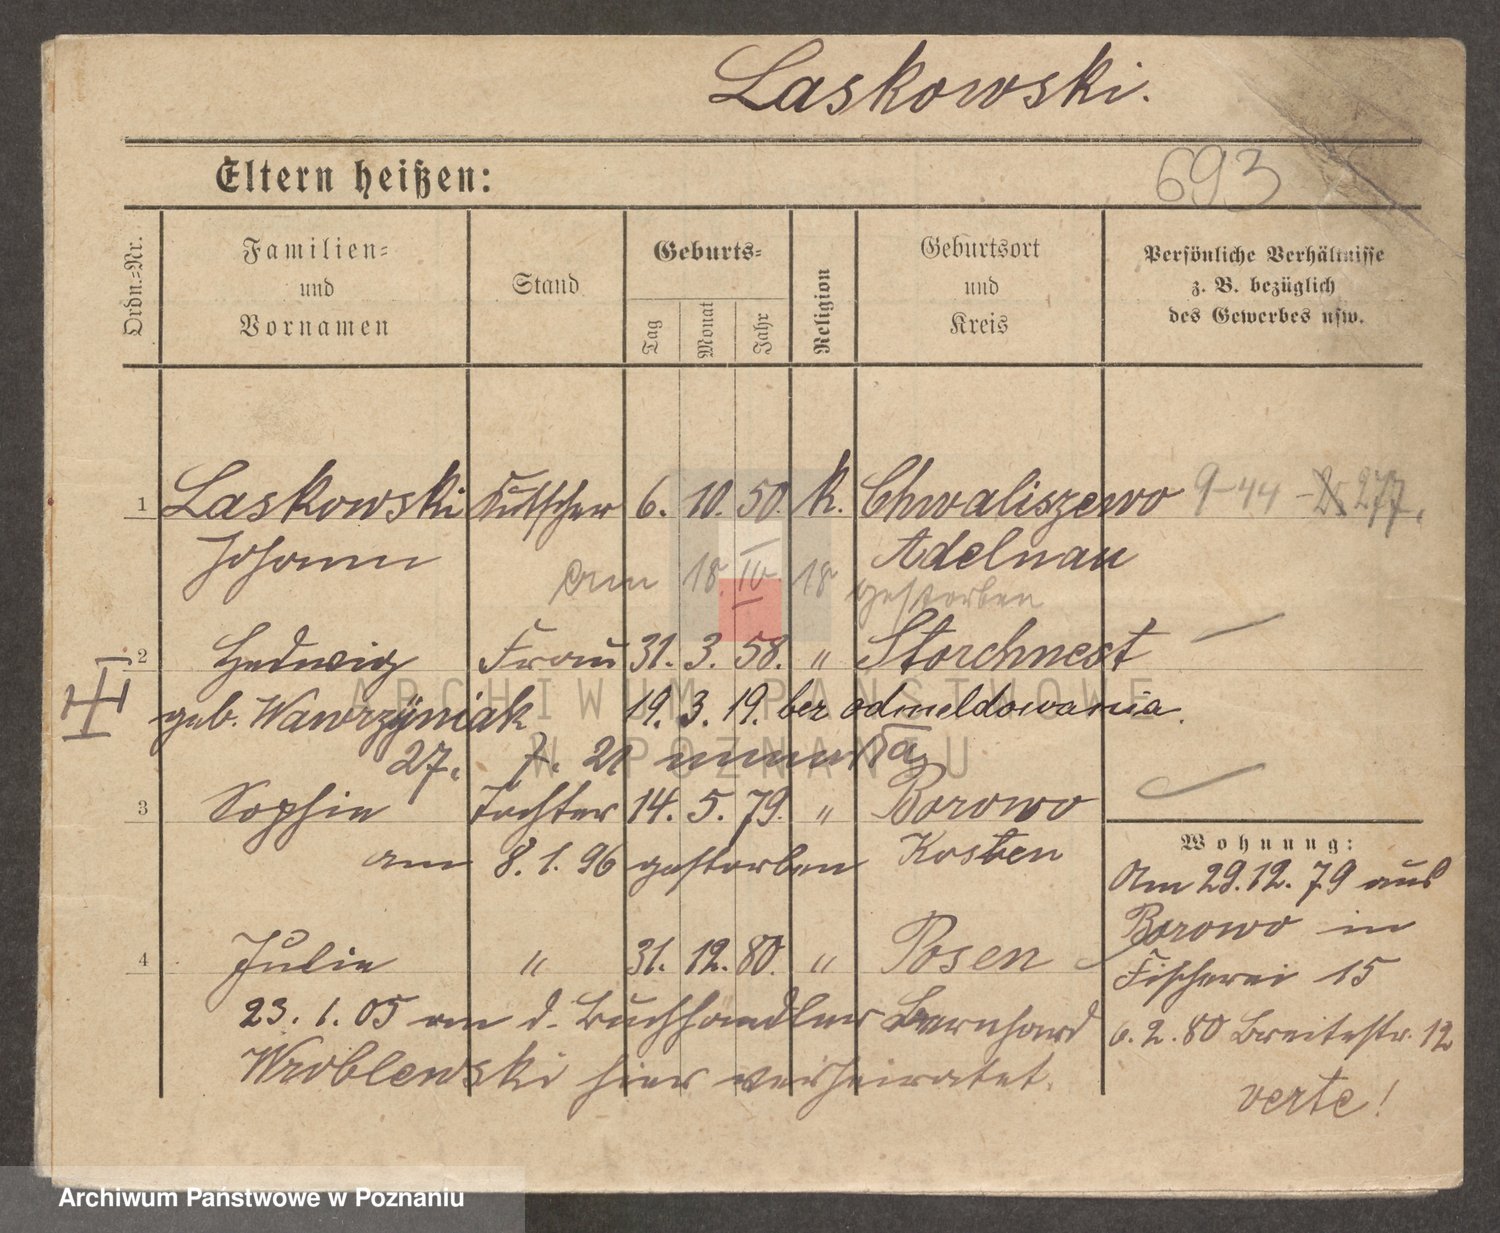 Laskowski.
Eltern heißen:
693
Ordn.-Nr.
Familien-
und
Vornamen
Stand
Geburts-
Tag
Monat
Jahr
Religion
Geburtsort
und
Kreis
Persönliche Verhältnisse
z. B. bezüglich
des Gewerbes usw.
1 Laskowski Kutscher 6. 10. 50. k. Chwaliszewo 9-44 - 277.
Johann Adelnau
am 18. IV 18 gestorben
2 Hedwig Frau 31. 3. 58. " Storchnest
geb. Wawrzyniak 19. 3. 19. bez odmeldowania.
27. 7. 21 umarła
3 Sophie Tochter 14. 5. 79. " Borowo
am 8. 1. 96 gestorben Kosten
4 Julie " 31. 12. 80. " Posen
23. 1. 05 an d. Buchhandler Bernhard
Wroblewski hier verheiratet.
Wohnung:
Am 29.12. 79 aus
Borowo in
Fischerei 15
6. 2. 80 Breitestr. 12
verte!
ARCHIWUM PAŃSTWOWE
W POZNANIU
Archiwum Państwowe w Poznaniu